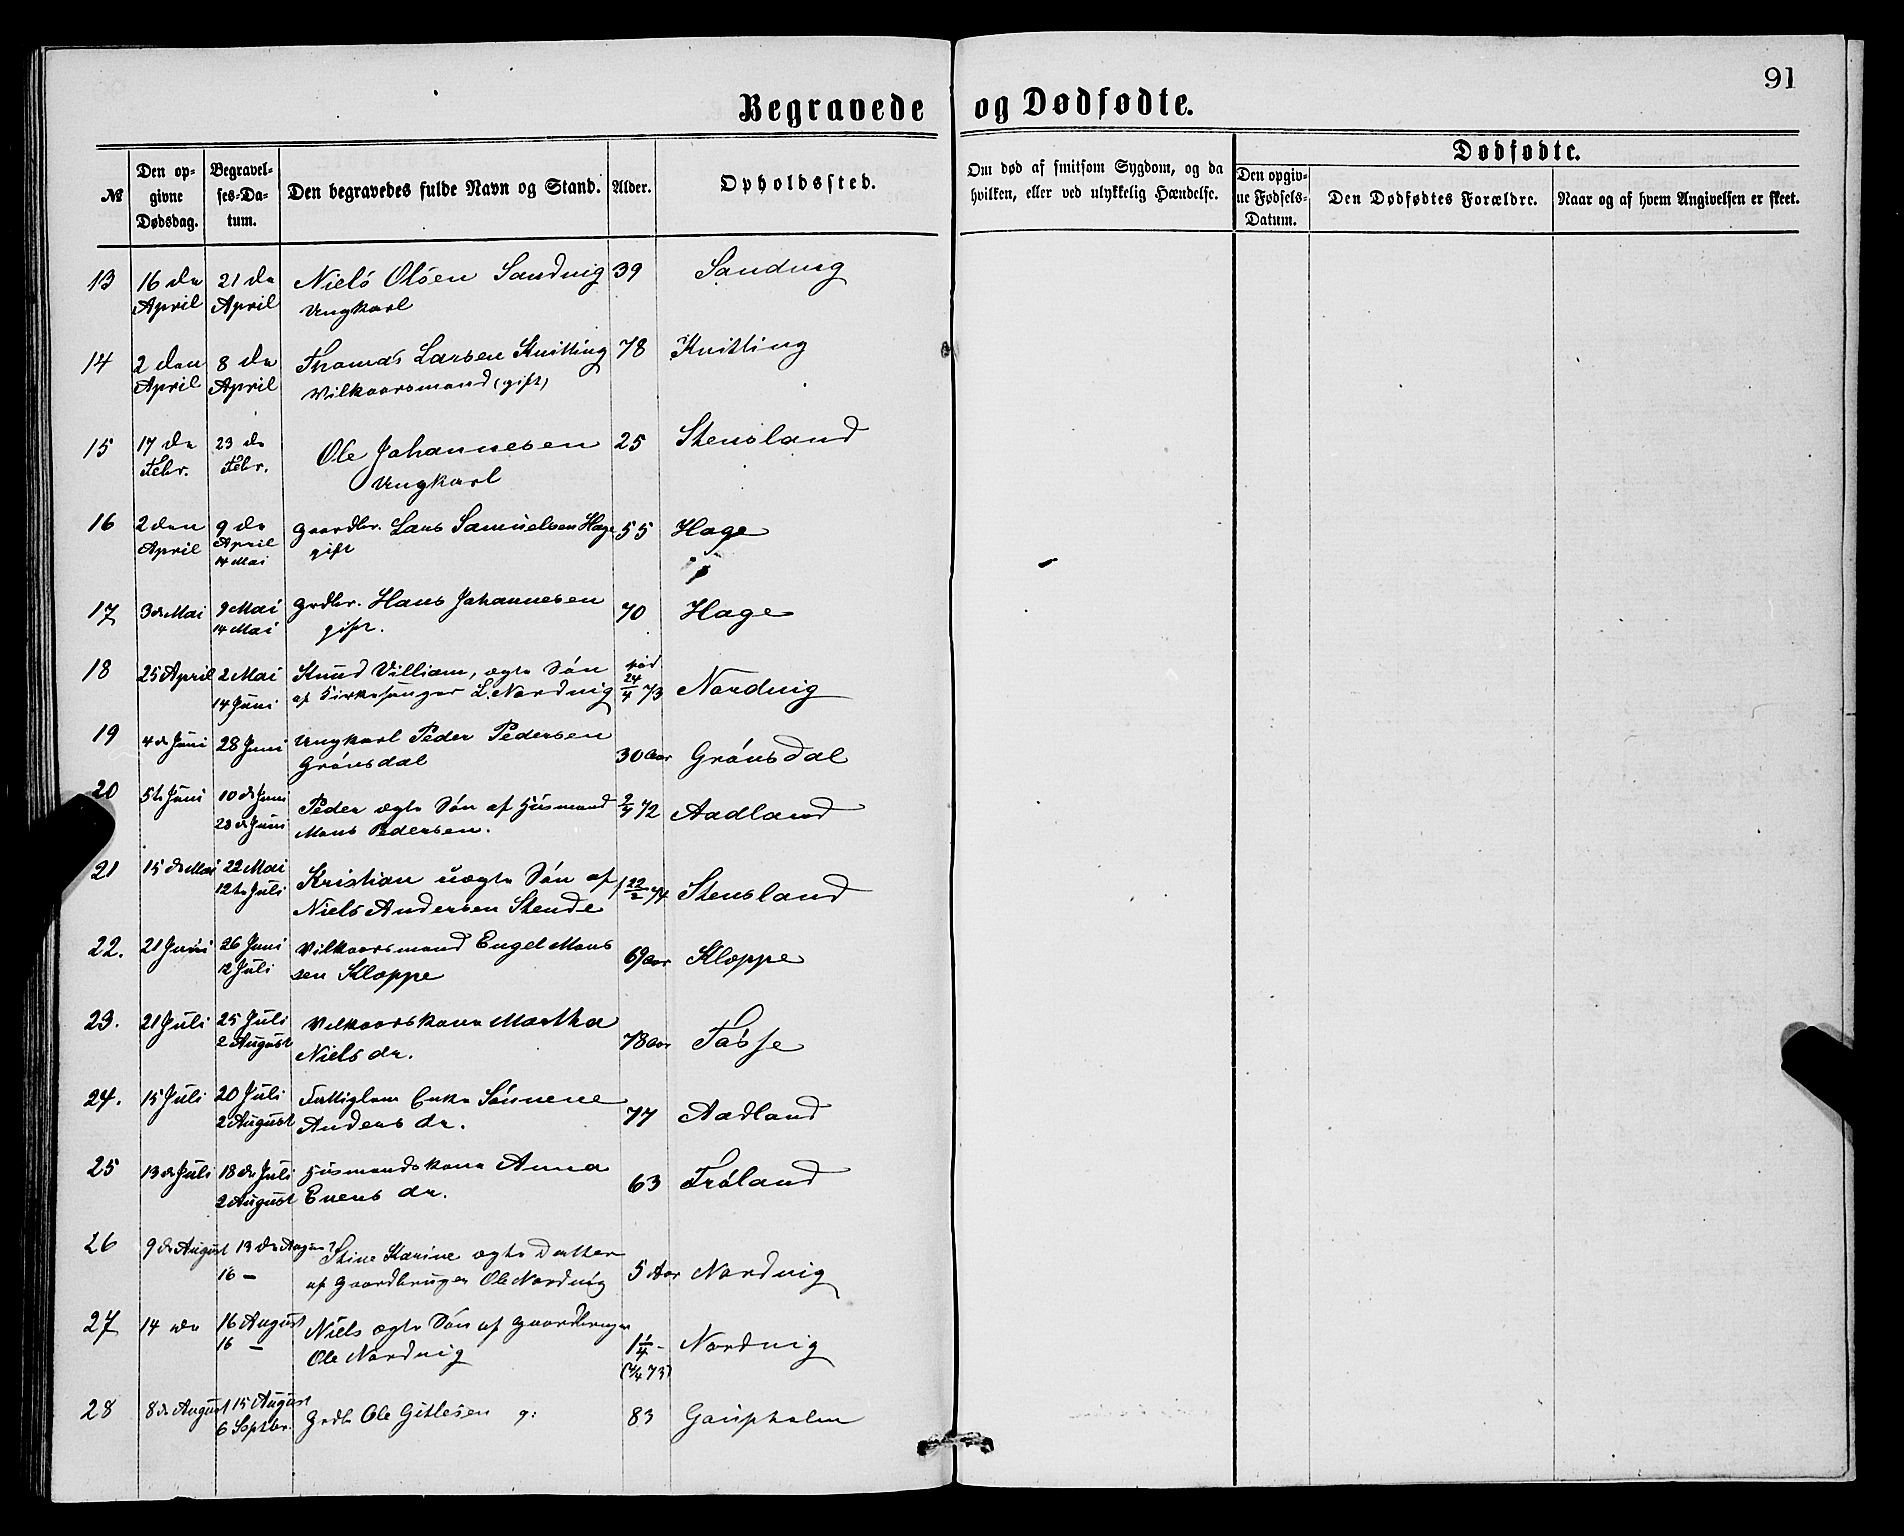 91
Begravede og Dødfødte.
№
Den opgivne Dødsdag.
Begravelses-Datum.
Den begravedes fulde Navn og Stand.
Alder.
Opholdssted.
Om død af smitsom Sygdom, og da hvilken, eller ved ulykkelig Hændelse.
Dødfødte.
Den opgivne Fødsels-Datum.
Den Dødfødtes Forældre.
Naar og af hvem Angivelsen er skeet.
13 16 de 21 de Niels Olsen Sandvig 39 Sandvig
April April Ungkarl
14 2 den 8 de Thomas Larsen Kvitling 78 Kvitling
April April Vilkaarsmand (gift)
15 17 de 23 de Ole Johannesen 25 Stensland
Febr. Febr. Ungkarl
16 2 den 9 de Gaardbr. Lars Samuelsen Hage 55 Hage
April April gift
14 Mai
17 3 de Mai 9 Mai Grdbr. Hans Johannesen 70 Hage
14 Mai gift.
18 25 April 2 Mai Knud Villiam, ægte Søn fød 24/4 73 Nordvig
14 Juni af Kirkesanger L. Nordvig
19 4 de Juni 28 Juni Ungkarl Peder Pedersen 30 Aar Grønsdal
Grønsdal
20 5te Juni 10 de Juni Peder ægte Søn af Husmand 9/4 72 Aadland
28 de Juni Mons Pedersen.
21 15 de Mai 22 Mai Kristian uægte Søn af 22/2 74 Stensland
12te Juli Niels Andersen Stende
22. 21 Juni 26 Juni Vilkaarsmand Engel Mons 69 Aar Kloppe
12 Juli sen Kloppe
23. 21 Juli 25 Juli Vilkaarskone Martha 78 Aar Tøsse
2 August Niels dr.
24. 15 Juli 20 Juli Fattiglem Enke Sønnene 77 Aadland
2 August Anders dr.
25 13 de Juli 18 de Juli Husmandskone Anna 63 Trøland
2 August Evens dr.
26 9 de August 13 de August Stine Karine ægte Datter 5 Aar Nordvig
16 — af Gaardbruger Ole Nordvig
27 14 de 16 August Niels ægte Søn af Gaardbruger 1 1/4 - Nordvig
16 — Ole Nordvig
28 8 de August 15 August Grdb Ole Gitlesen g: 83 Gaupholm
6 Septbr.